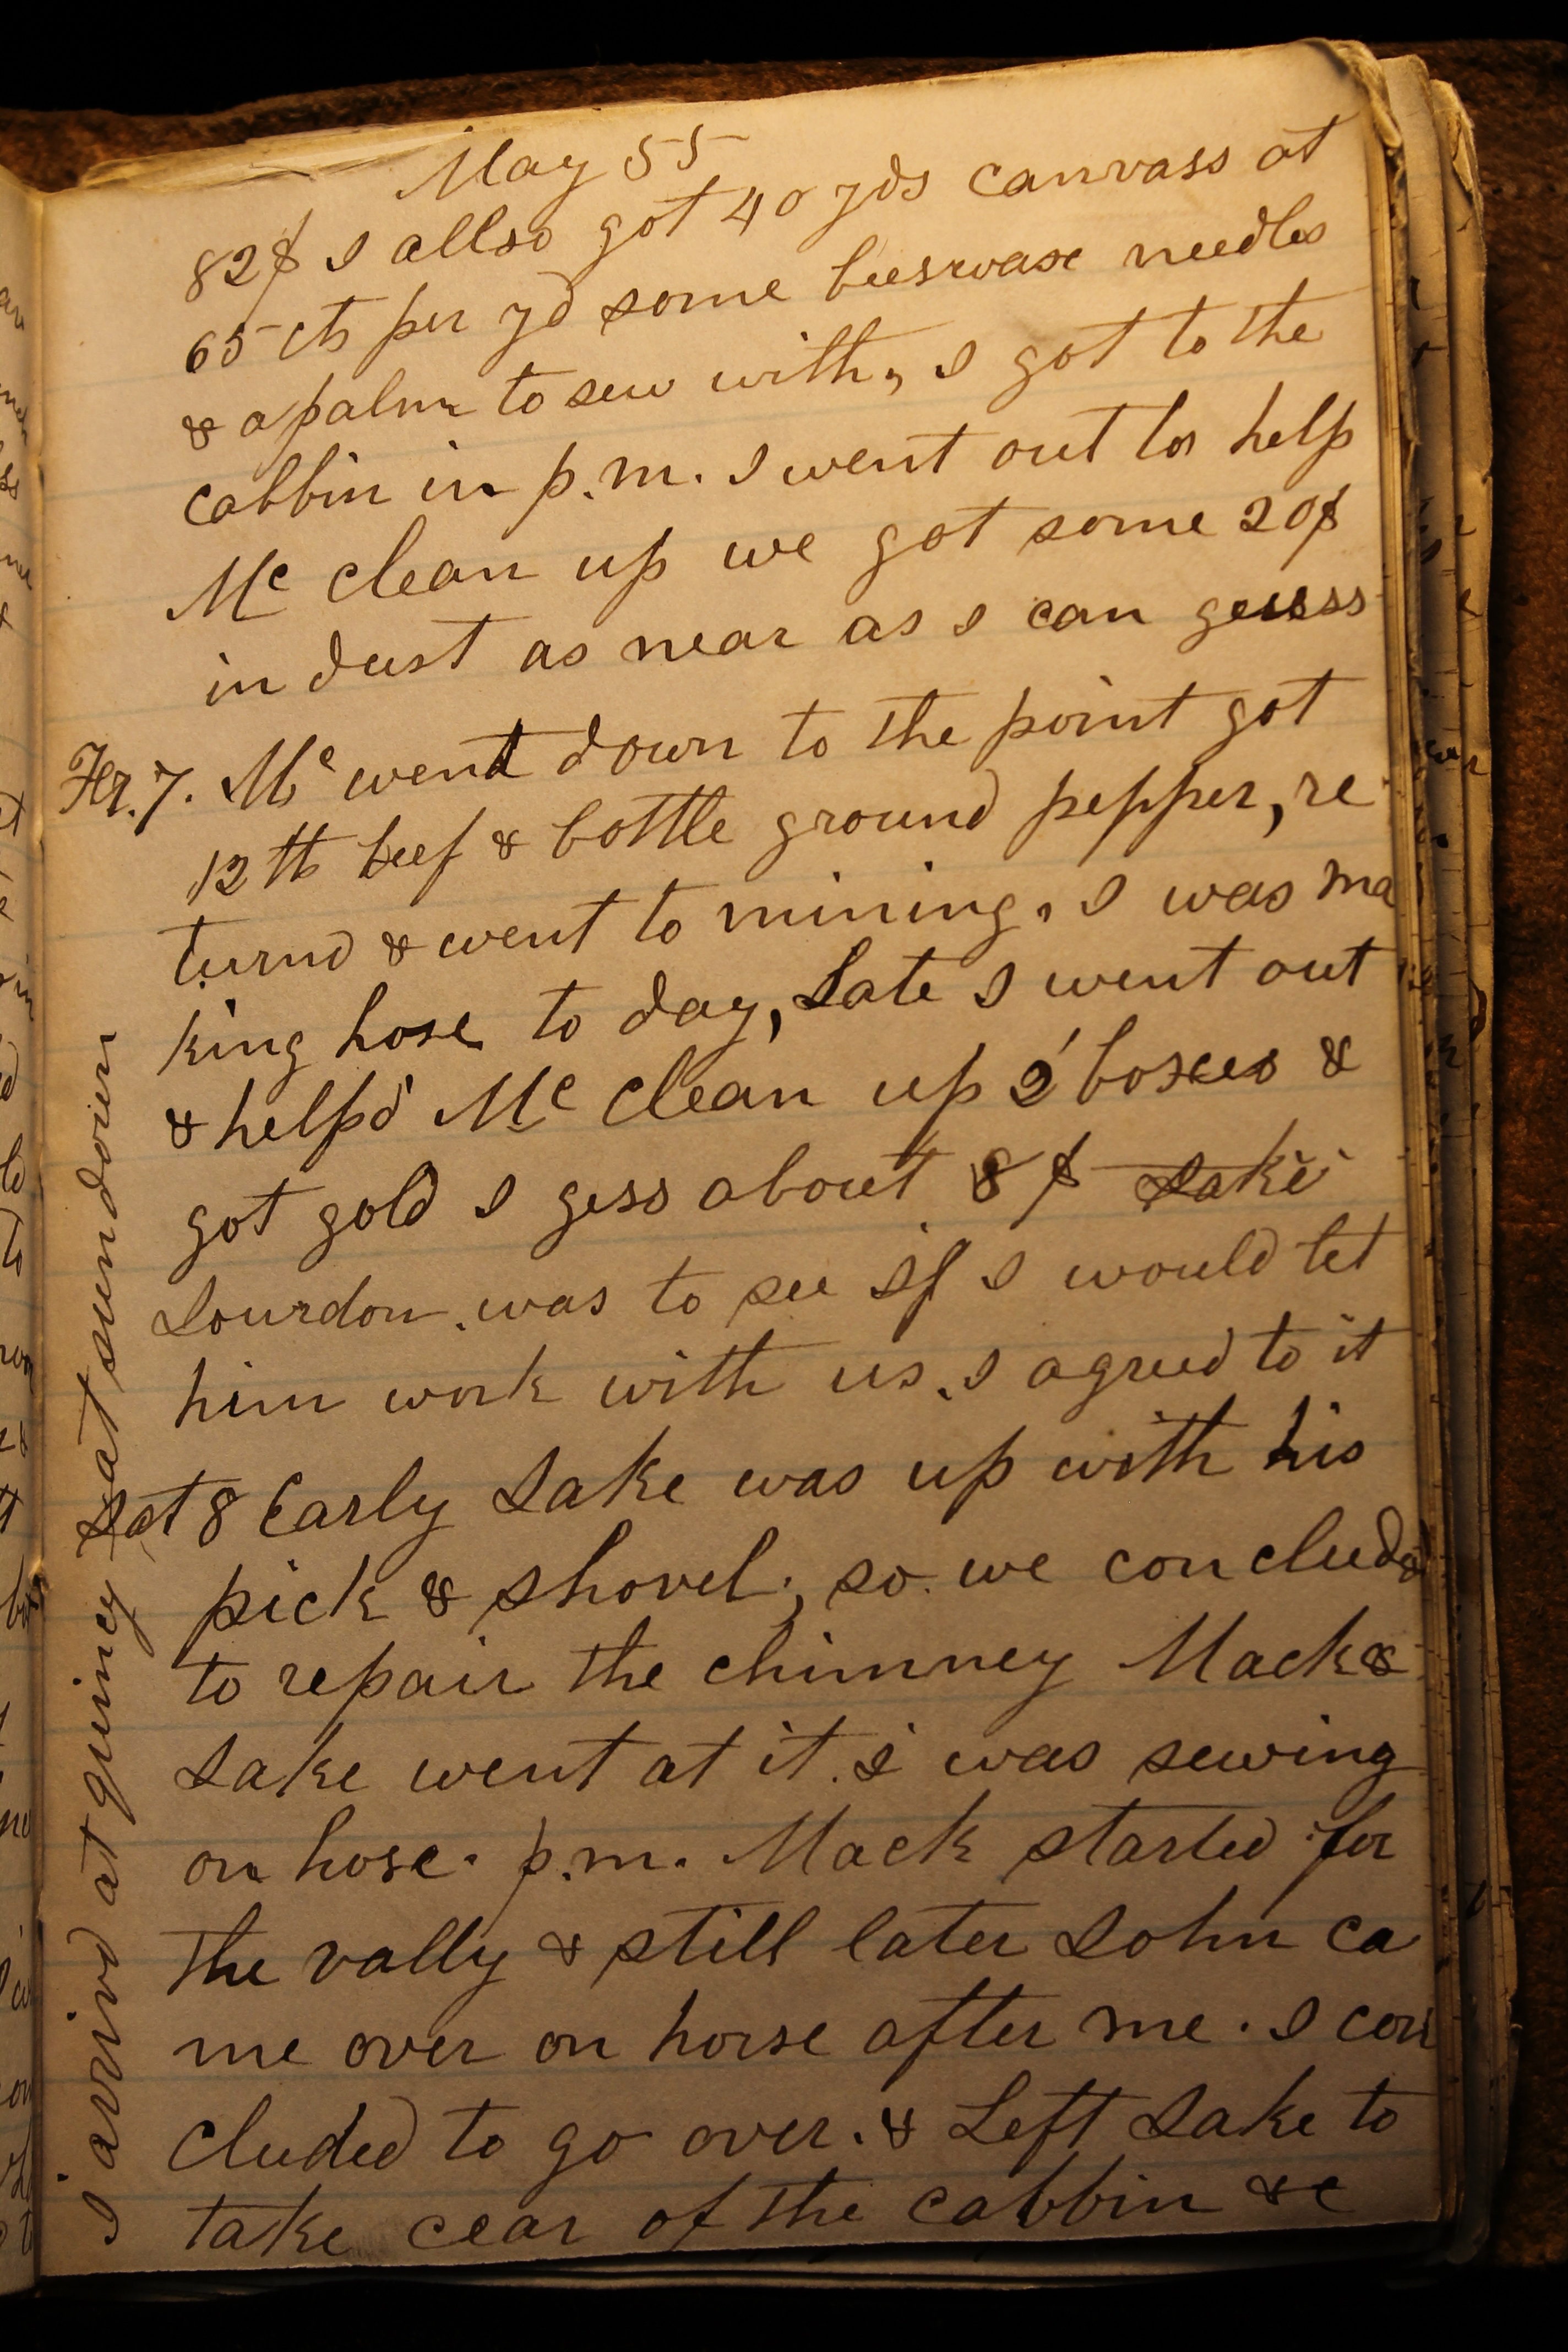 May 55
82$ I allso got 40 yds canvass at
65 cts per yd some beeswax needles
& a palm to sew with, I got to the
cabbin in p.m. I went out to help
Mc clean up we got some 20$
in dust as near as I can guess
Fr. 7. Mc went down to the point got
12 lb beef & bottle ground pepper, re
turnd & went to mining, I was ma
king hose to day, Late I went out
& helpd Mc clean up 2 boxes &
got gold I gess about 8$ Jake
Lourdon was to see If I would let
him work with us, I agreed to it
Sat 8 Early Jake was up with his
pick & shovel, so we concluded
to repair the chimney Mack &
Jake went at it. I was sewing
on hose. p.m. Mack started for
the vally & still later John ca
me over on horse after me. I con
cluded to go over. & Left Jake to
take cear of the cabbin &c
I arrivd at quincy at sundown